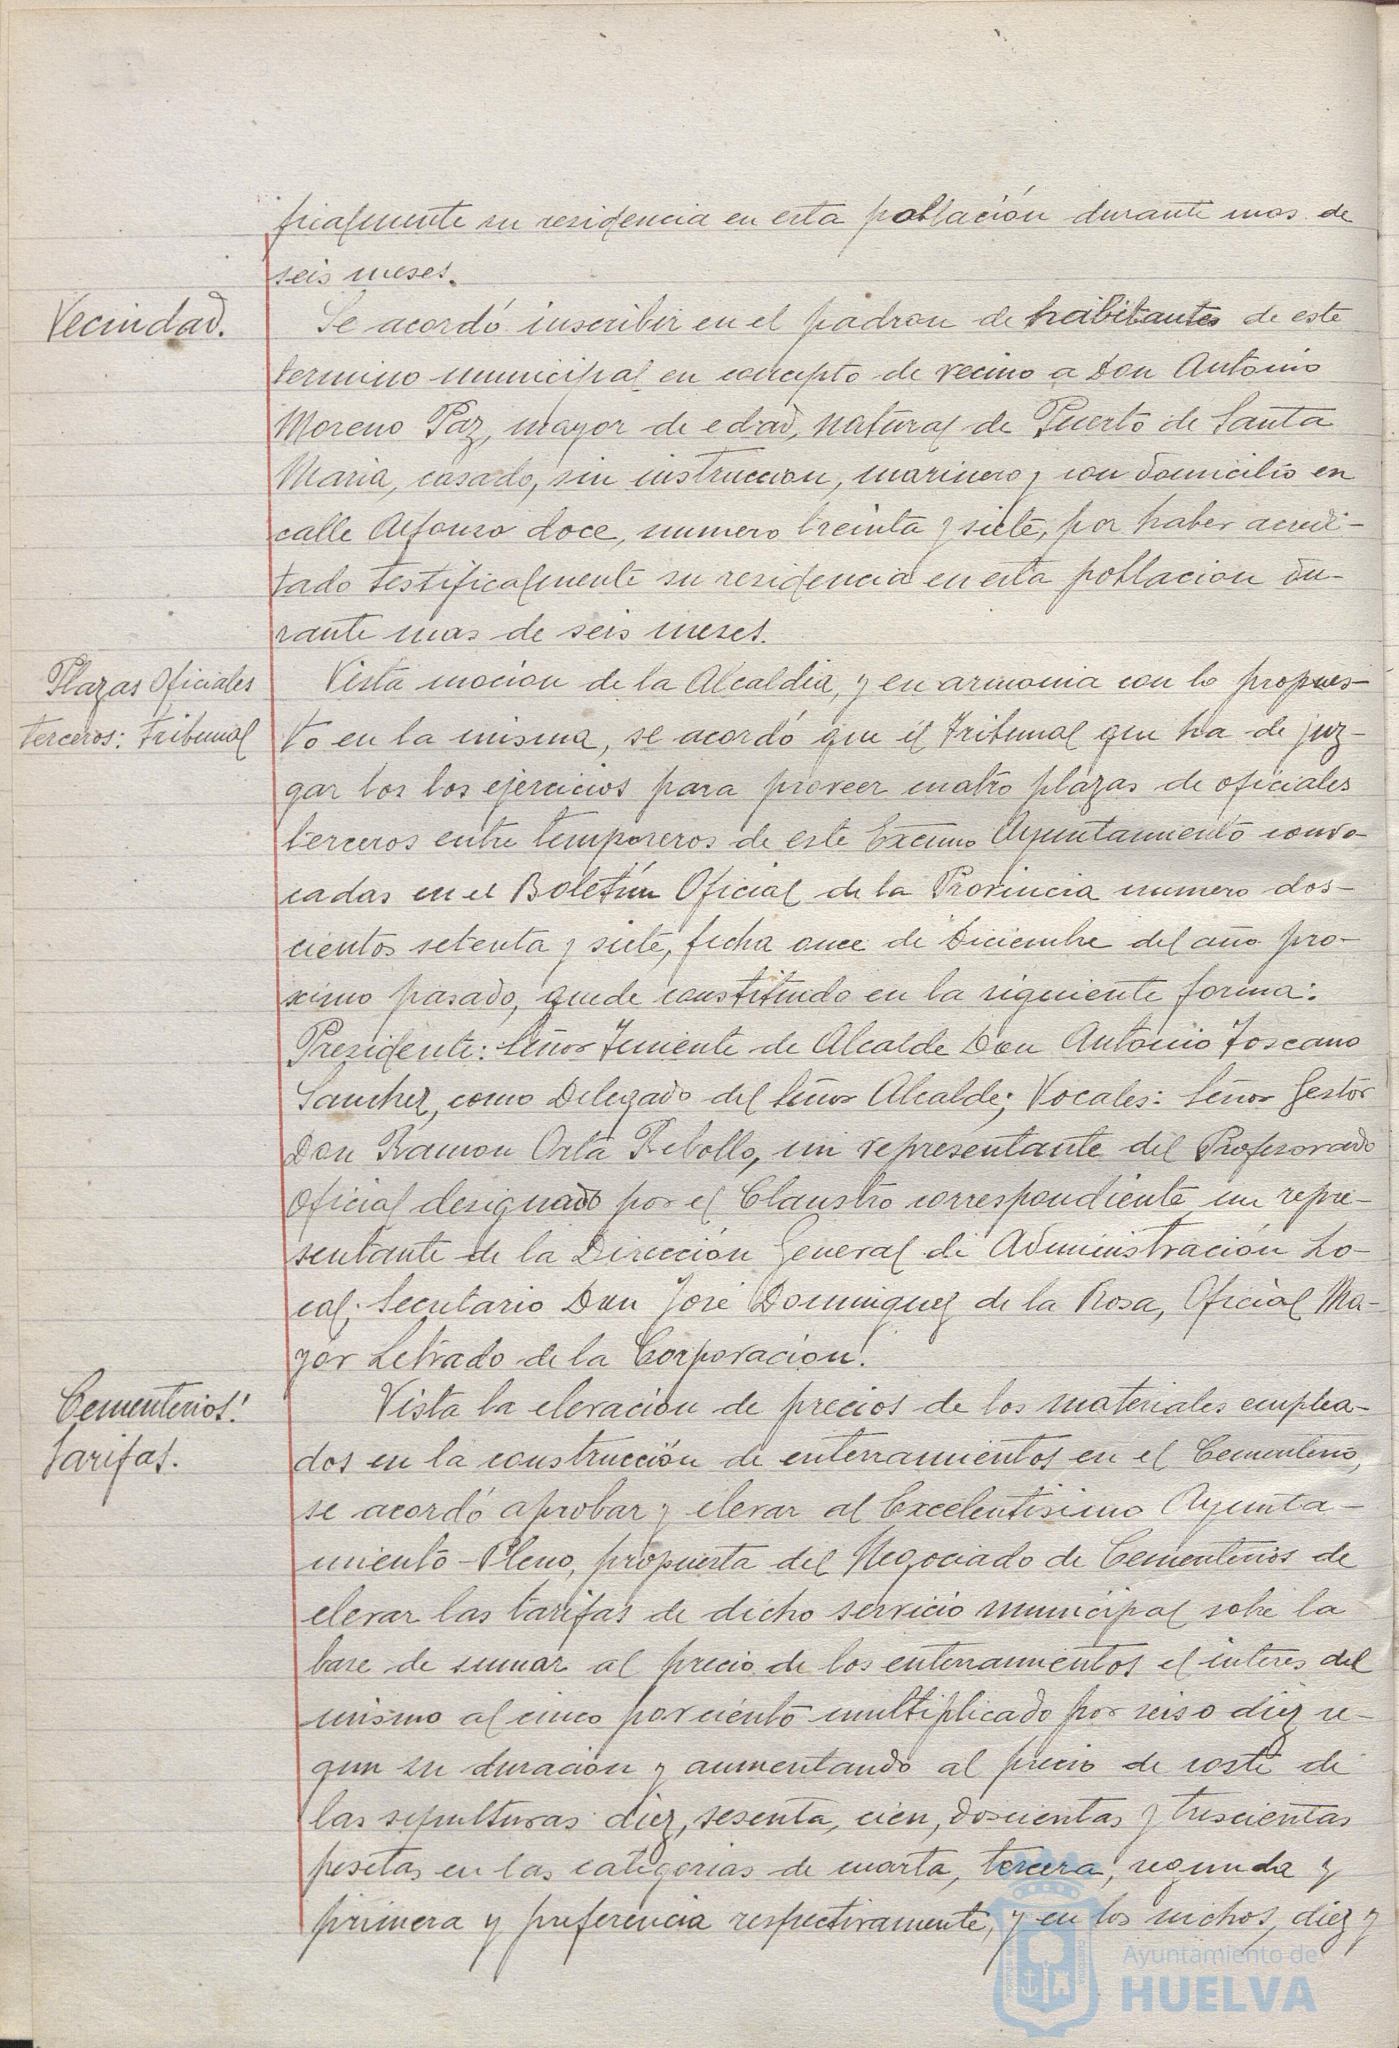 ficalmente su residencia en esta población durante mas de
seis meses.
Vecindad.
Se acordó inscribir en el padron de habitantes de este
termino municipal en concepto de vecino a Don Antonio
Moreno Paz, mayor de edad, natural de Puerto de Santa
Maria, casado, sin instruccion, marinero y con domicilio en
calle Alfonso doce, numero treinta y siete, por haber acredi-
tado testificalmente su residencia en esta poblacion du-
rante mas de seis meses.
Plazas Oficiales
terceros: tribunal
Vista mocion de la Alcaldia, y en armonia con lo propues-
to en la misma, se acordó que el tribunal que ha de juz-
gar los los ejercicios para proveer cuatro plazas de oficiales
terceros entre temporeros de este Excmo Ayuntamiento convo-
cadas en el Boletín Oficial de la Provincia numero dos-
cientos setenta y siete, fecha once de Diciembre del año pro-
ximo pasado, quede constituido en la siguiente forma:
Presidente: Señor Teniente de Alcalde Don Antonio Toscano
Sanchez, como Delegado del Señor Alcalde; Vocales: Señor Gestor
Don Ramon Orta Rebollo, un representante del Profesorado
Oficial designado por el Claustro correspondiente un repre-
sentante de la Dirección General de Administración Lo-
cal; Secretario Don José Dominguez de la Rosa, Oficial Ma-
yor Letrado de la Corporación.
Cementerios:
tarifas.
Vista la elevación de precios de los materiales emplea-
dos en la construcción de enterramientos en el Cementerio,
se acordó aprobar y elevar al Excelentisimo Ayunta-
miento-Pleno, propuesta del Negociado de Cementerios de
elevar las tarifas de dicho servicio municipal sobre la
base de sumar al precio de los enterramientos el interes del
mismo al cinco por ciento multiplicado por seis o diez se-
gun su duración y aumentando al precio de coste de
las sepulturas diez, sesenta, cien, doscientas y trescientas
pesetas en las categorias de cuarta, tercera, segunda y
primera y preferencia respectivamente, y en los nichos, diez y
Ayuntamiento de
HUELVA